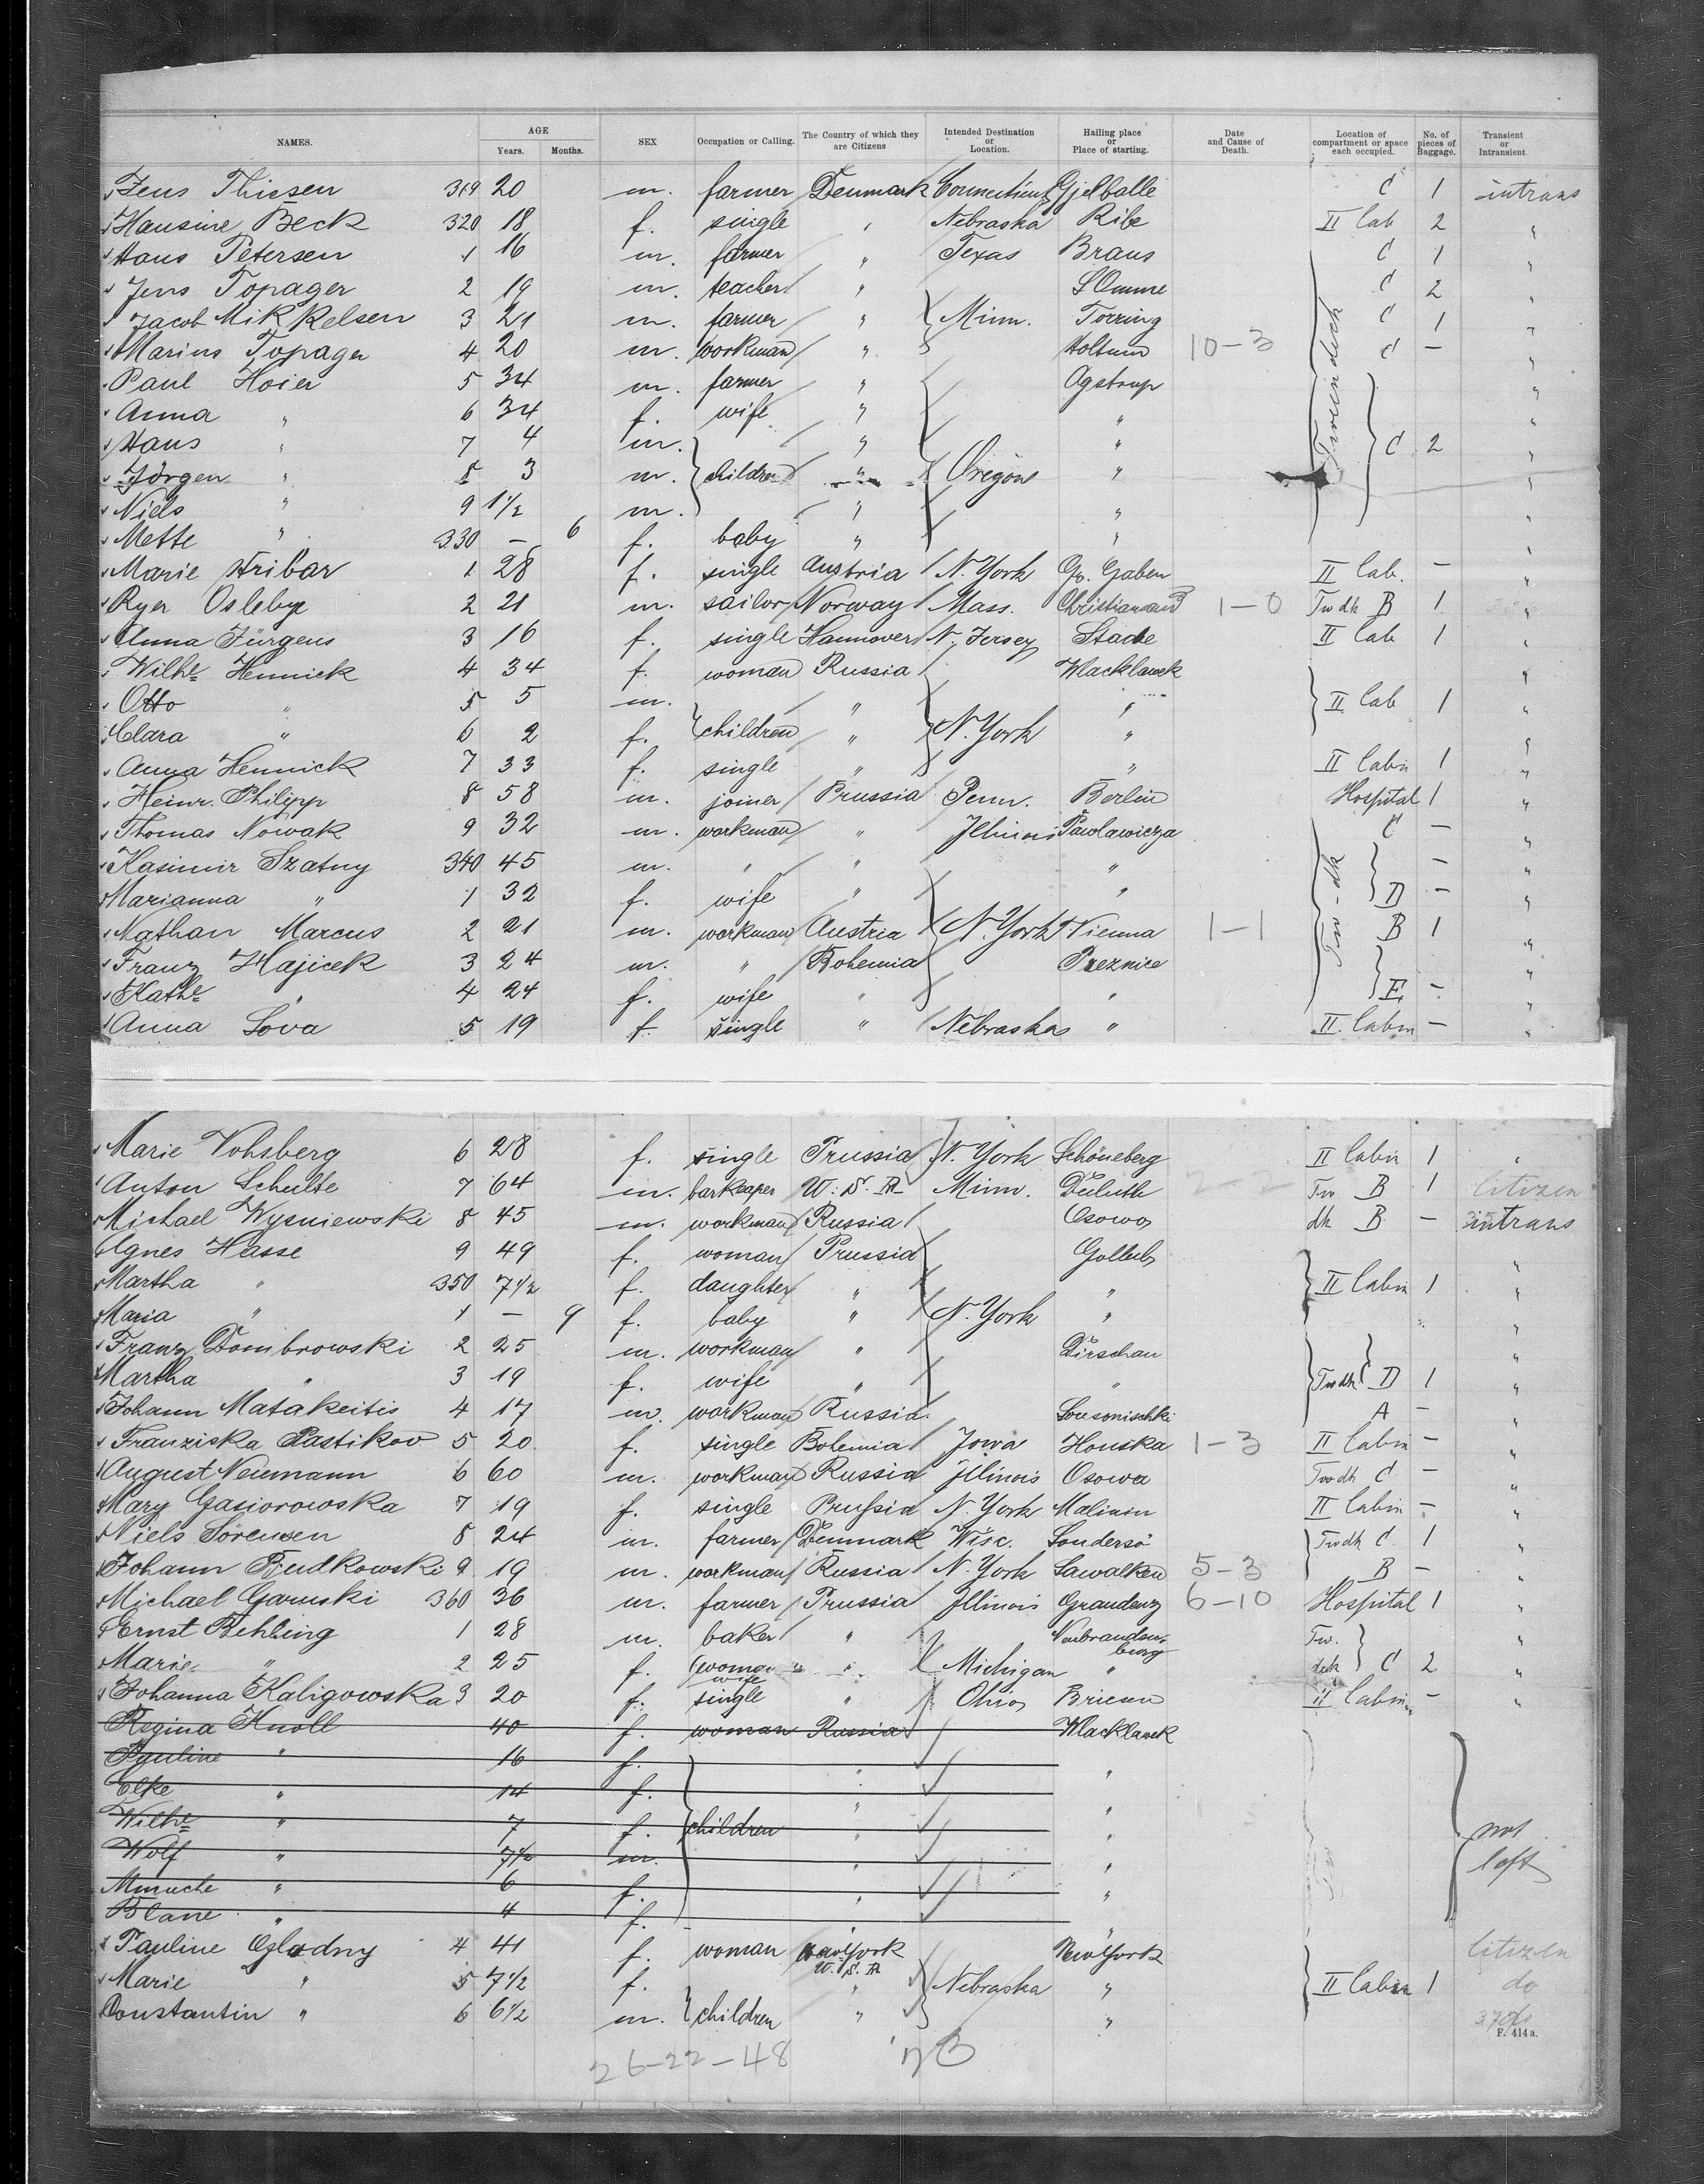 NAMES. AGE Years. Months. SEX Occupation or Calling. The Country of which they are Citizens Intended Destination or Location. Hailing place or Place of starting. Date and Cause of Death. Location of compartment or space each occupied. No. of pieces of Baggage. Transient or Intransient.
Jens Thiesen 319 20 m. farmer Denmark Connecticut Gjelballe C 1 intrans
Hansine Beck 320 18 f. single " Nebraska Ribe II Cab 2 "
Hans Petersen 1 16 m. farmer " Texas Brans C 1 "
Jens Topager 2 19 m. teacher " S Omme C 2 "
Jacob Mikkelsen 3 21 m. farmer " Minn. Torring Tweendeck C 1 "
Marius Topager 4 20 m. workman " Holtum 10-3 C - "
Paul Hoier 5 34 m. farmer " Agstrup "
Anna " 6 34 f. wife " " "
Hans " 7 4 m. " " C 2 "
Jörgen " 8 3 m. children " Oregon " "
Niels " 9 1 1/2 m. " " "
Mette " 330 - 6 f. baby " " "
Marie Hribar 1 28 f. single Austria N. York Gr. Gaben II Cab. - "
Ryer Osleby 2 21 m. sailor Norway Mass. Christiansand 1-0 Twdk B 1 "
Anna Jürgens 3 16 f. single Hannover N. Jersey Stade II Cab 1 "
Wilhe Hennick 4 34 f. woman Russia Wlacklawek "
Otto " 5 5 m. " " II Cab 1 "
Clara " 6 2 f. children " N. York " "
Anna Hennick 7 33 f. single " " II Cabin 1 "
Heinr. Philipp 8 58 m. joiner Prussia Penn. Berlin Hospital 1 "
Thomas Nowak 9 32 m. workman " Illinois Pawlawicza C - "
Kasimir Szatny 340 45 m. " " " Tw-dk - "
Marianna " 1 32 f. wife " " D - "
Nathan Marcus 2 21 m. workman Austria N. York Vienna 1-1 B 1 "
Franz Hajicek 3 24 m. " Bohemia Preznice "
Kathe " 4 24 f. wife " " E - "
Anna Sova 5 19 f. single " Nebraska " II. Cabin - "
Marie Vohsberg 6 28 f. single Prussia N. York Schöneberg II Cabin 1 "
Anton Schulte 7 64 m. barkeaper U. S. A Minn. Duluth 2-2 Tw B 1 Citizen
Michael Wysniewski 8 45 m. workman Russia Osowo dk B - intrans
Agnes Hasse 9 49 f. woman Prussia Gollub "
Martha " 350 7 1/2 f. daughter " " II Cabin 1 "
Maria " 1 - 9 f. baby " N. York " "
Franz Dombrowski 2 25 m. workman " Dirschau "
Martha " 3 19 f. wife " " Twdk D 1 "
Johann Matakeitis 4 17 m. workman Russia Sousonischki A - "
Franziska Pastikov 5 20 f. single Bohemia Jowa Houska 1-3 II Cabin - "
August Neumann 6 60 m. workman Russia Illinois Osowa Twdk C - "
Mary Gasiorowska 7 19 f. single Prussia N. York Malinin II Cabin - "
Niels Sörensen 8 24 m. farmer Denmark Wisc. Sondersö Twdk C 1 "
Johann Rudkowski 9 19 m. workman Russia N. York Sawalken 5-3 B - "
Michael Garnski 360 36 m. farmer Prussia Illinois Graudenz 6-10 Hospital 1 "
Ernst Behling 1 28 m. baker " Neubrandenburg Tw. "
Marie " 2 25 f. woman wife " Michigan " deck C 2 "
Johanna Kaligowska 3 20 f. single " Ohio Briesen II Cabin - "
Regina Knoll 40 f. woman Russia Wlacklawek
Pauline " 16 f. " "
Elke " 14 f. " "
Wilhe " 7 f. children " "
Wolf " 7 1/2 m. " " not
Minuche " 6 f. " " left
Blane " 4 f. "
Pauline Ogladny 4 41 f. woman New York U. S. A New York Citizen
Marie " 5 7 1/2 f. " Nebraska " II Cabin 1 do
Constantin " 6 6 1/2 m. children " " do
F. 414 a.
26-22-48